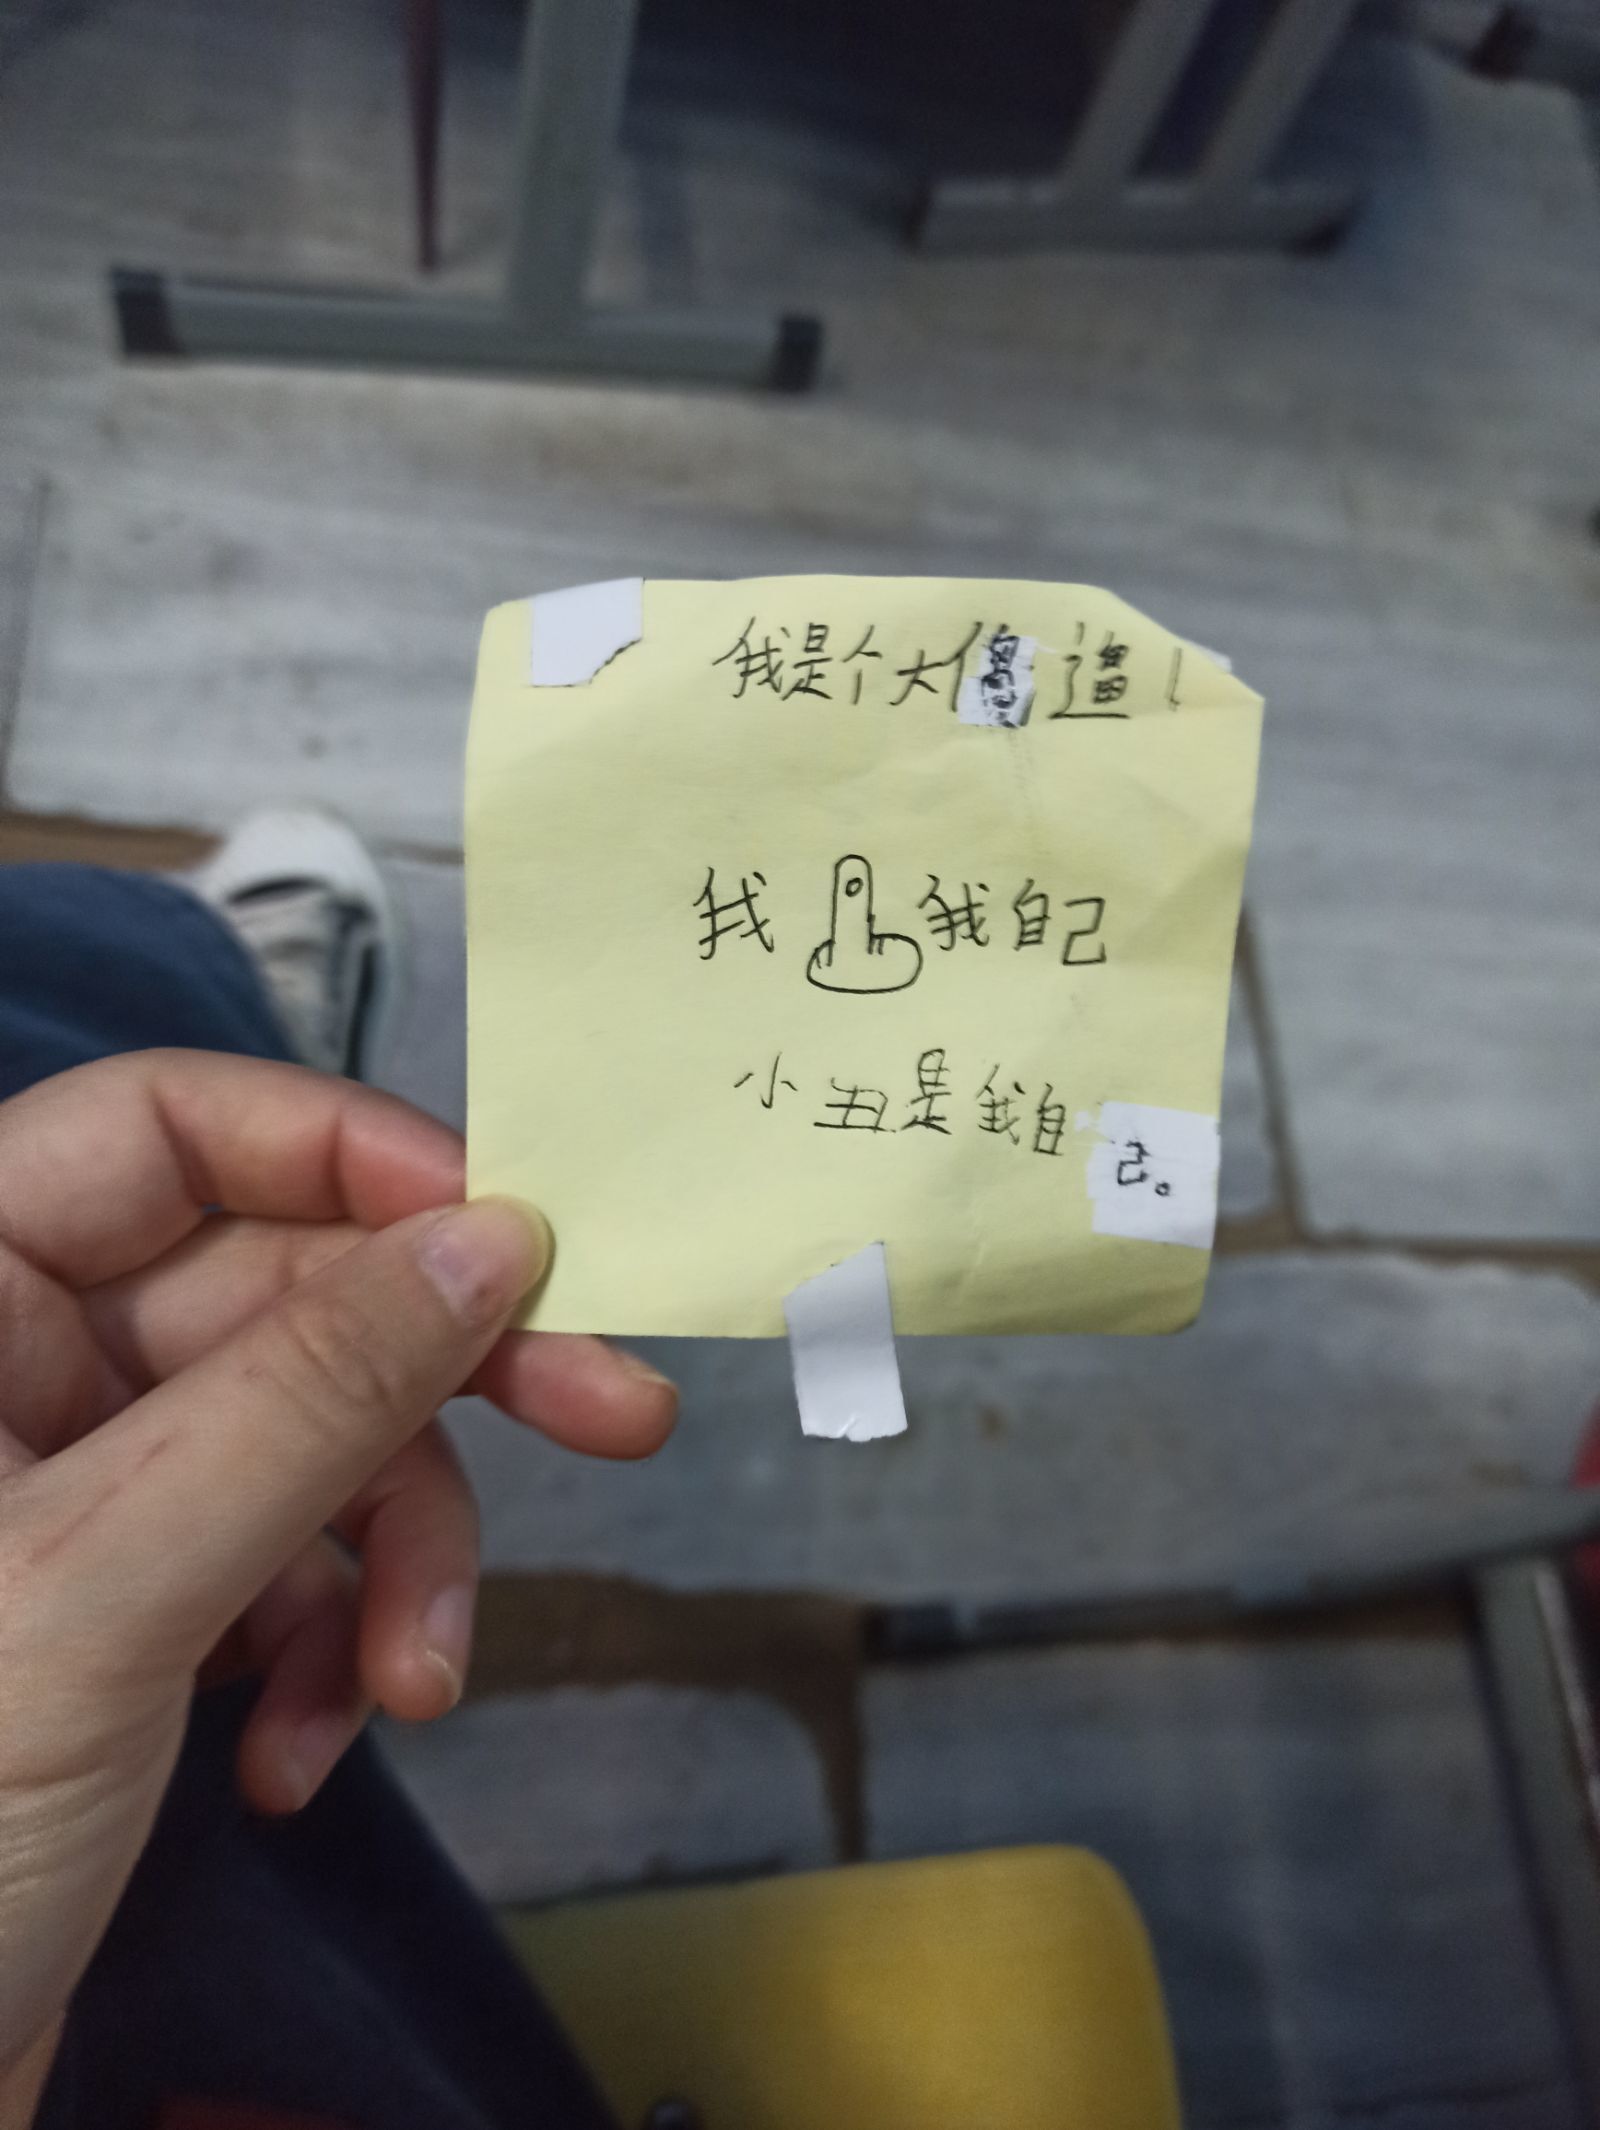 我是个大傻逼！
我 我自己
小丑是我自己。